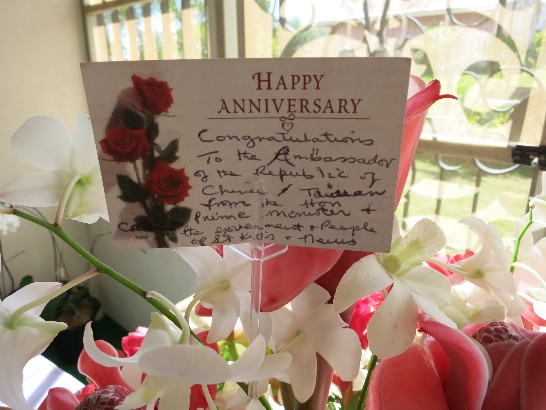 HAPPY
ANNIVERSARY
Congratulations
To the Ambassador
of the Republic of
China / Taiwan
from the Hon
Prime Minister +
the government + People
of St Kitts + Nevis